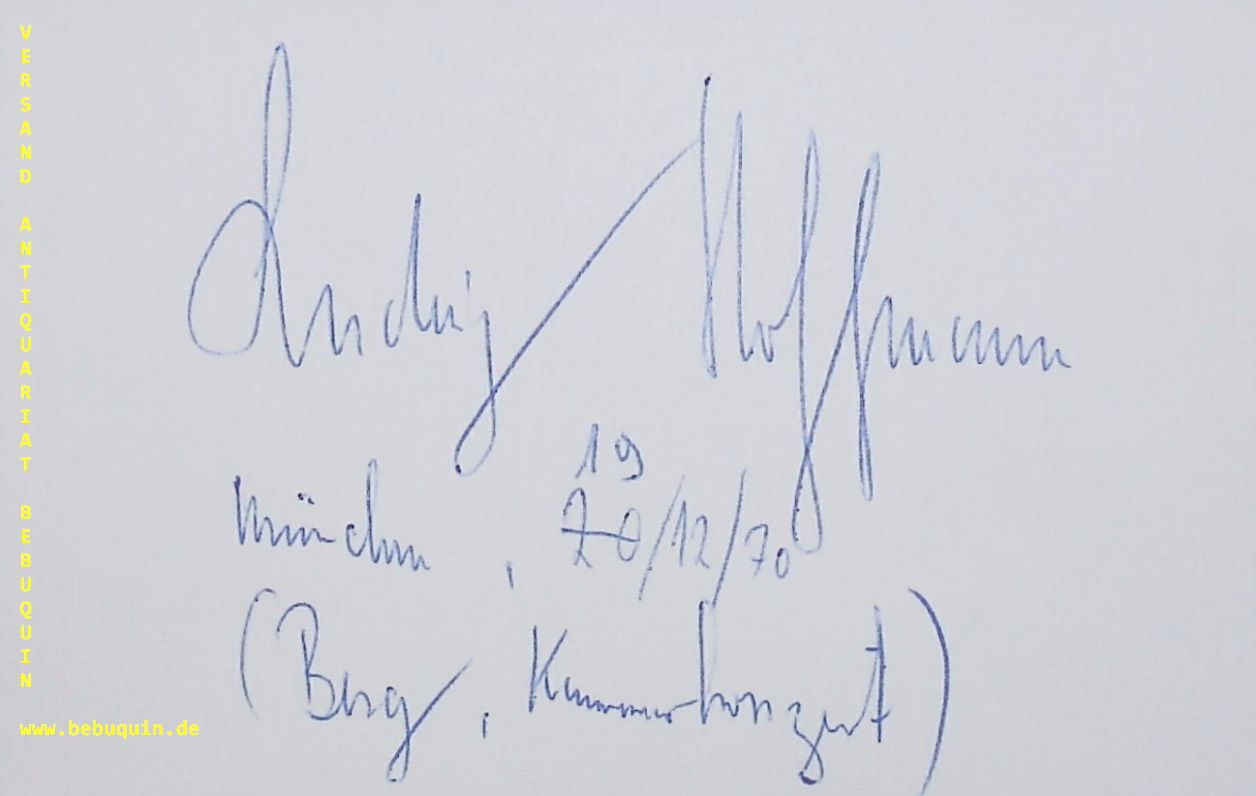 Ludwig Hoffmann
19
München, 20/12/70
(Berg, Kammerkonzert)
VERSAND ANTIQUARIAT BEBUQUIN
www.bebuquin.de